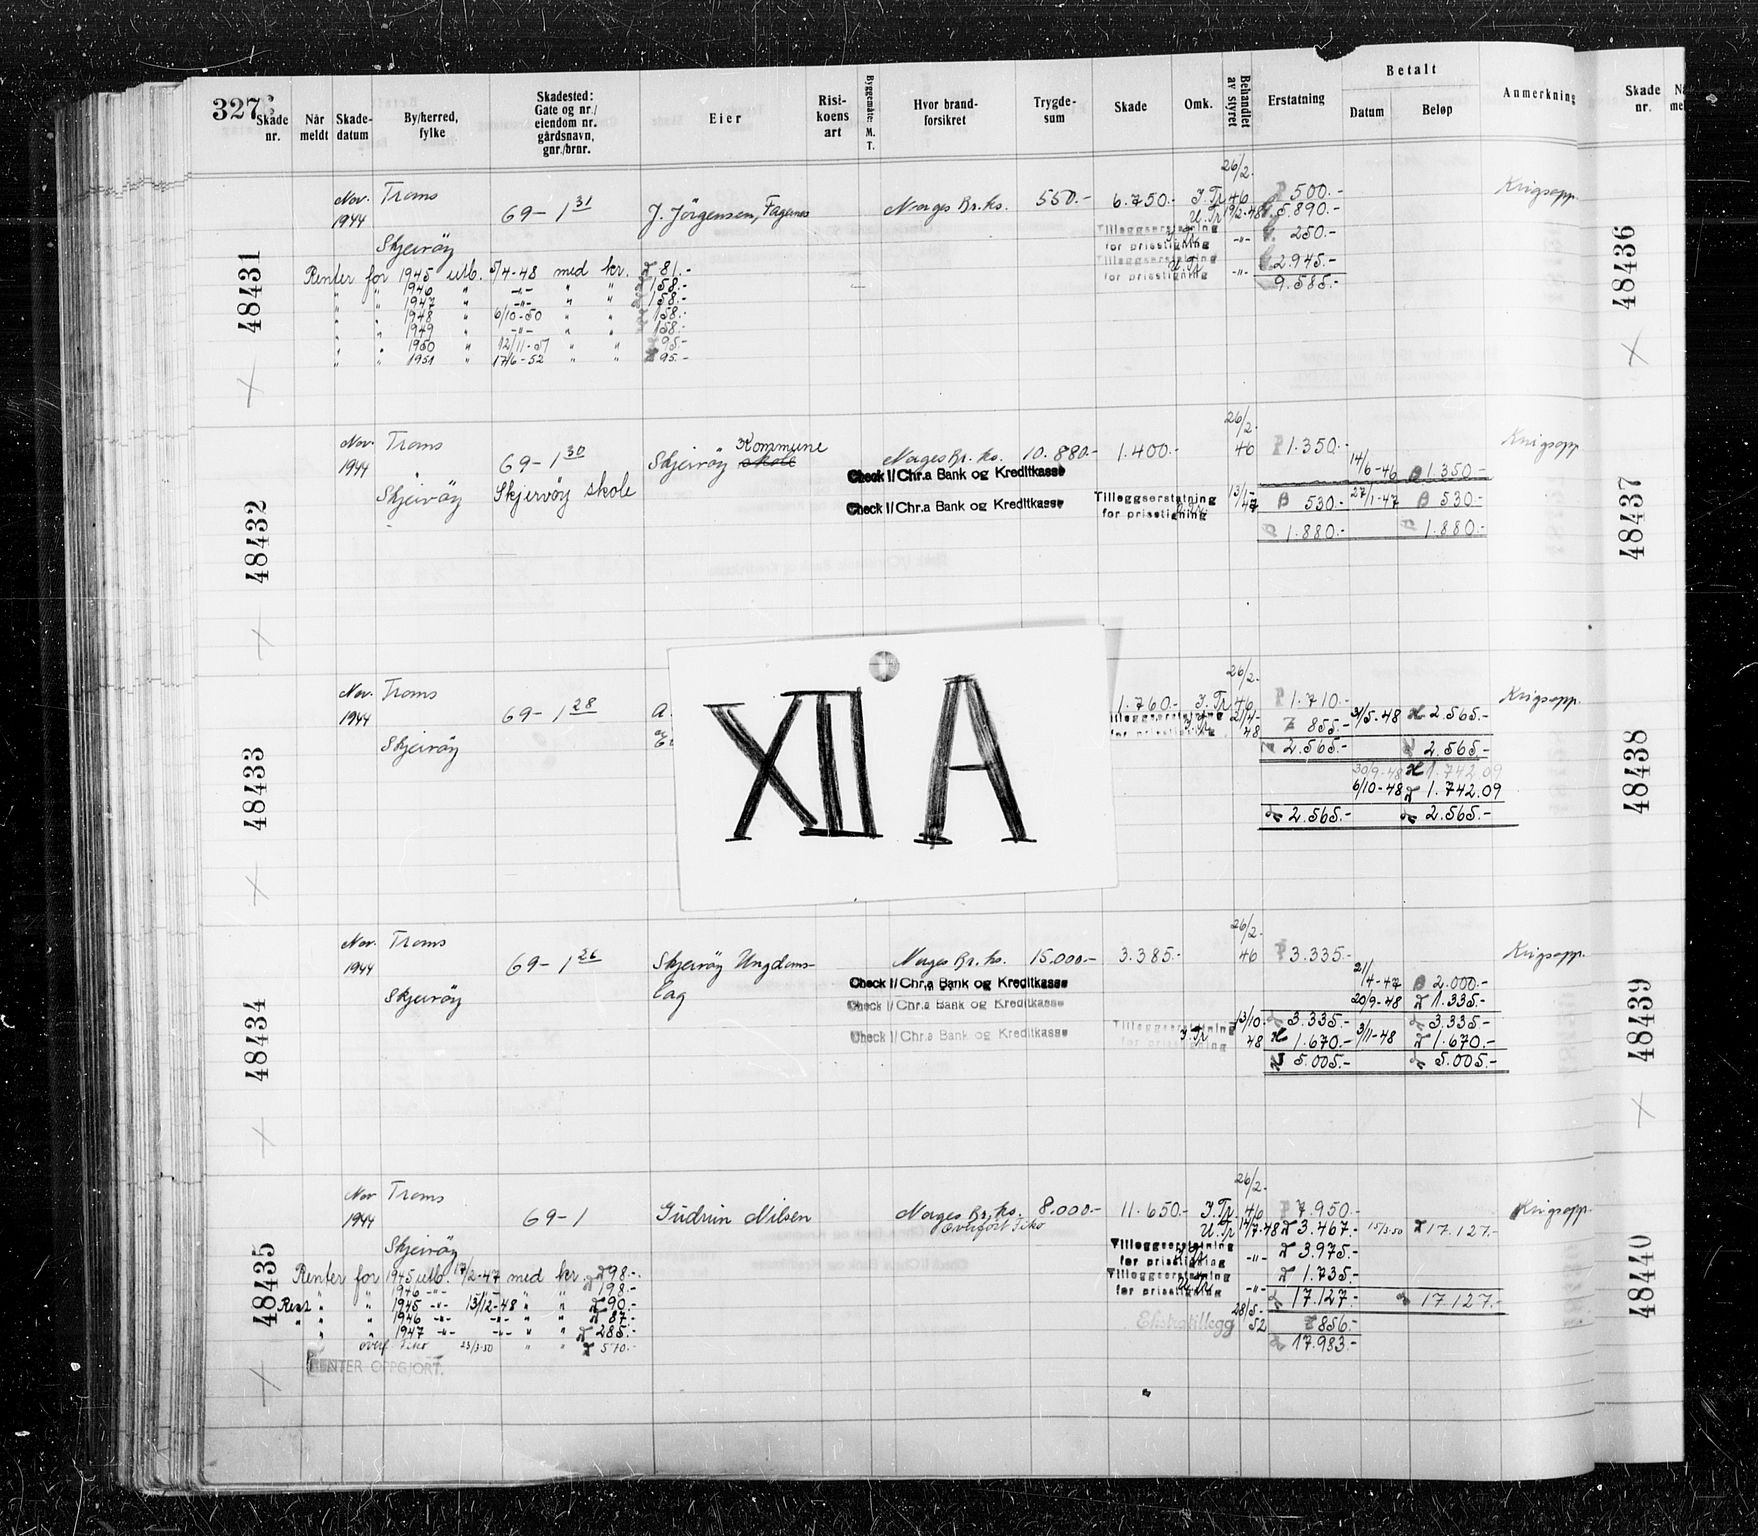 327
Skade nr.
Når meldt
Skade-datum
By/herred, fylke
Skadested: Gate og nr./ eiendom nr. gårdsnavn, gnr./brnr.
Eier
Risi-koens art
Byggemåte: M. T.
Hvor brand-forsikret
Trygde-sum
Skade
Omk.
Behandlet av styret
Erstatning
Betalt
Datum
Beløp
Anmerkning
Skade nr.
48431
Nov. 1944 Troms 69-1 31 J. Jörgensen, Fagenes Norges Br.ks. 550.- 6.750.- I.Tr 26/2-46 500.- Krigsopp.
U.Tr 19/2-48 5.890.-
Skjervöy Tilleggserstatning for prisstigning I.Tr -"- 250.-
Tilleggserstatning for prisstigning U.Tr -"- 2.945.-
9.585.-
Renter for 1945 utb. 5/4-48 med kr. 81.-
" " 1946 " -"- " " 158.-
" " 1947 " -"- " " 158.-
" " 1948 " 6/10-50 " " 158.-
" " 1949 " -"- " " 158.-
" " 1950 " 12/11-51 " " 95.-
" " 1951 " 17/6-52 " " 95.-
48432
Nov. 1944 Troms 69-1 30 Skjervöy Kommune skole Norges Br.ks. 10.880.- 1.400.- 26/2-46 1.350.- Krigsopp.
Check I/Chr.a Bank og Kreditkasse 14/6-46 1.350.-
Skjervöy Skjervöy skole
Check I/Chr.a Bank og Kreditkasse Tilleggserstatning for prisstigning 13/1-47 530.- 27/1-47 530.-
1.880.- 1.880.-
48433
Nov. 1944 Troms 69-1 28 A 1.760.- I.Tr 26/2-46 1.710.- Krigsopp.
Skjervöy Tilleggserstatning for prisstigning I.Tr 21/4-48 855.- 31/5-48 2.565.-
2.565.- 2.565.-
30/9-48 1.742.09
6/10-48 1.742.09
2.565.- 2.565.-
XII A
48434
Nov. 1944 Troms 69-1 26 Skjervöy Ungdoms- Norges Br.ks. 15.000.- 3.385.- 26/2-46 3.335.- Krigsopp.
Skjervöy lag Check I/Chr.a Bank og Kreditkasse 21/4-47 2.000.-
Check I/Chr.a Bank og Kreditkasse 20/9-48 1.335.-
3.335.- 3.335.-
Check I/Chr.a Bank og Kreditkasse Tilleggserstatning for prisstigning I.Tr 13/10-48 1.670.- 3/11-48 1.670.-
5.005.- 5.005.-
48435
Nov 1944 Troms 69-1 Gudrun Nilsen Norges Br.ks. 8.000.- 11.650.- I.Tr 26/2-46 7.950.- Krigsopp.
Overfört Fiko U.Tr 14/7-48 3.467.- 15/3-50 17.127.-
Skjervöy Tilleggserstatning for prisstigning I.Tr -"- 3.975.-
Tilleggserstatning for prisstigning U.Tr -"- 1.735.-
17.127.- 17.127.-
Ekstratillegg 28/5-52 856.-
17.983.-
Renter for 1945 utb. 17/2-47 med kr. 98.-
" " 1946 -"- -"- 198.-
Rest " " 1945 -"- 13/12-48 " " 90.-
" " " 1946 -"- -"- " " 87.-
" " 1947 -"- -"- " " 285.-
overf. Fiko 23/3-50 " " 570.-
RENTER OPPGJORT.
48436
48437
48438
48439
48440